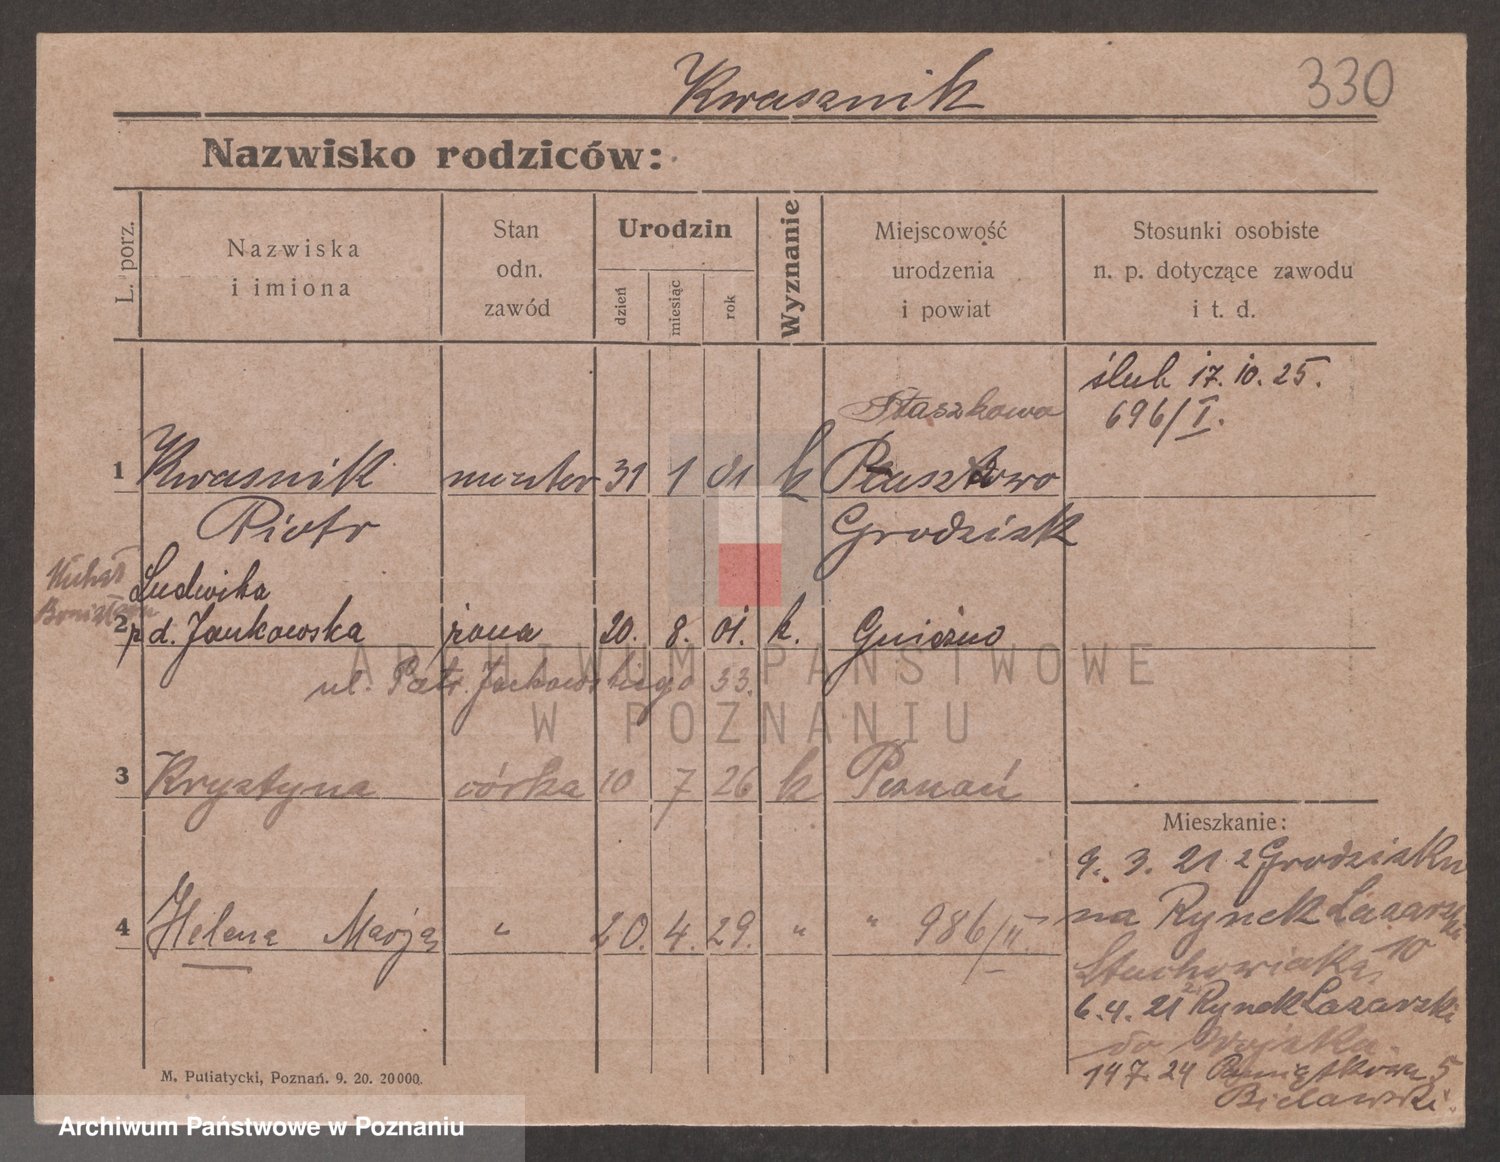 Kwasznik
330
Nazwisko rodziców:
L. porz.
Nazwiska
i imiona
Stan
odn.
zawód
Urodzin
dzień
miesiąc
rok
Wyznanie
Miejscowość
urodzenia
i powiat
Stosunki osobiste
n. p. dotyczące zawodu
i t. d.
ślub 17. 10. 25.
696/I.
Staszkowo
1 Kwasnik monter 31 1 01 k Ptaszkowo
Piotr Grodzisk
Ludwika
2 p d. Jankowska żona 20. 8. 01. k. Gniezno
ul. Patr. Jackowskiego 33.
3 Krystyna córka 10 7 26 k Poznań
Mieszkanie:
9. 3. 21 z Grodziska
4 Helena Marja " 20. 4. 29. " " 986/II
na Rynek Lazarski
10
6. 4. 21 Rynek Lazarski
do Wojska
14 7. 24 Pamiątkowa 5
Bielawski
M. Putiatycki, Poznań. 9. 20. 20000.
ARCHIWUM PAŃSTWOWE
W POZNANIU
Archiwum Państwowe w Poznaniu